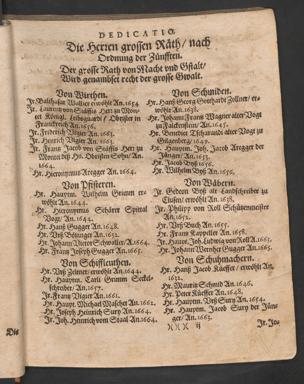 DEDICATIO.
Die Herren grossen Räth/ nach
Ordnung der Zünfften.
Der grosse Rath von Macht vnd Gstalt/
Wird genambset recht der grosse Gwalt.
Von Wirthen.
Jr. Balthasar Wallier erwöhlt An. 1654.
Jr. Laurentz von Stäffis Herr zu Mon-
tet Königl. Leibguardi/ Obrister in
Franckreich An. 1656.
Jr. Friderich Wigier An. 1663.
Jr. Heinrich Wigier An. 1663.
Jr. Frantz Jacob von Stäffis Herr zu
Montet deß Hn. Obristen Sohn/ An.
1664.
Hr. Hieronymus Aregger An. 1664.
Von Pfistern.
Hr. Hauptm. Wilhelm Grimm er-
wöhlt An. 1644.
Hr. Hieronymus Schärer Spital
Vogt An. 1644.
Hr. Hanß Gugger An. 1648.
Hr. Urß Büeinger An. 1652.
Hr. Johann Victor Schwoller An. 1664.
Hr. Frantz Joseph Gugger An. 1665.
Von Schiffleuthen.
Hr. Urß Zeltner/ erwöhlt An. 1644.
Hr. Hauptm. Carli Grimm Seckel-
schreiber/ An. 1657.
Jr. Frantz Wigier An. 1661.
Hr. Haupt. Michael Maschet An. 1662.
Hr. Joseph Heinrich Sury An. 1664.
Jr. Joh. Heinrich vom Staal An. 1664.
Die
Von Schmiden.
Hr. Hanß Georg Gotthardt Zollner/ er-
wöhlt An. 1644.
Hr. Johann Frantz Wagner alter Vogt
zu Falckenstein/ An. 1645.
Hr. Benedict Tscharandi alter Vogt zu
Gilgenberg/ 1649.
Hr. Hauptm. Joh. Jacob Aregger der
Jünger/ An. 1653.
Hr. Jacob Byß/ 1656.
Hr. Wilhelm Byß An. 1656.
Von Wäbern.
Jr. Gedeon Byß alt Landschreiber zu
Clusen/ erwöhlt An. 1638.
Jr. Philipp von Roll Schützenmeister
An. 1652.
Hr. Urß Buch An. 1657.
Hr. Frantz Reppeller An. 1658.
Jr. Hauptm. Joh. Ludwig von Roll An. 1665.
Hr. Johann Werther Gugger An. 1665.
Von Schuhmachern.
Hr. Hanß Jacob Rüeffer/ erwöhlt An.
1631.
Hr. Mauritz Schmid An. 1646.
Hr. Peter Rüeffer An. 1648.
Hr. Hauptm. Urß Sury An. 1654.
Hr. Hauptm. Jacob Sury der Jüng
XXX ij
Jr. Jo-